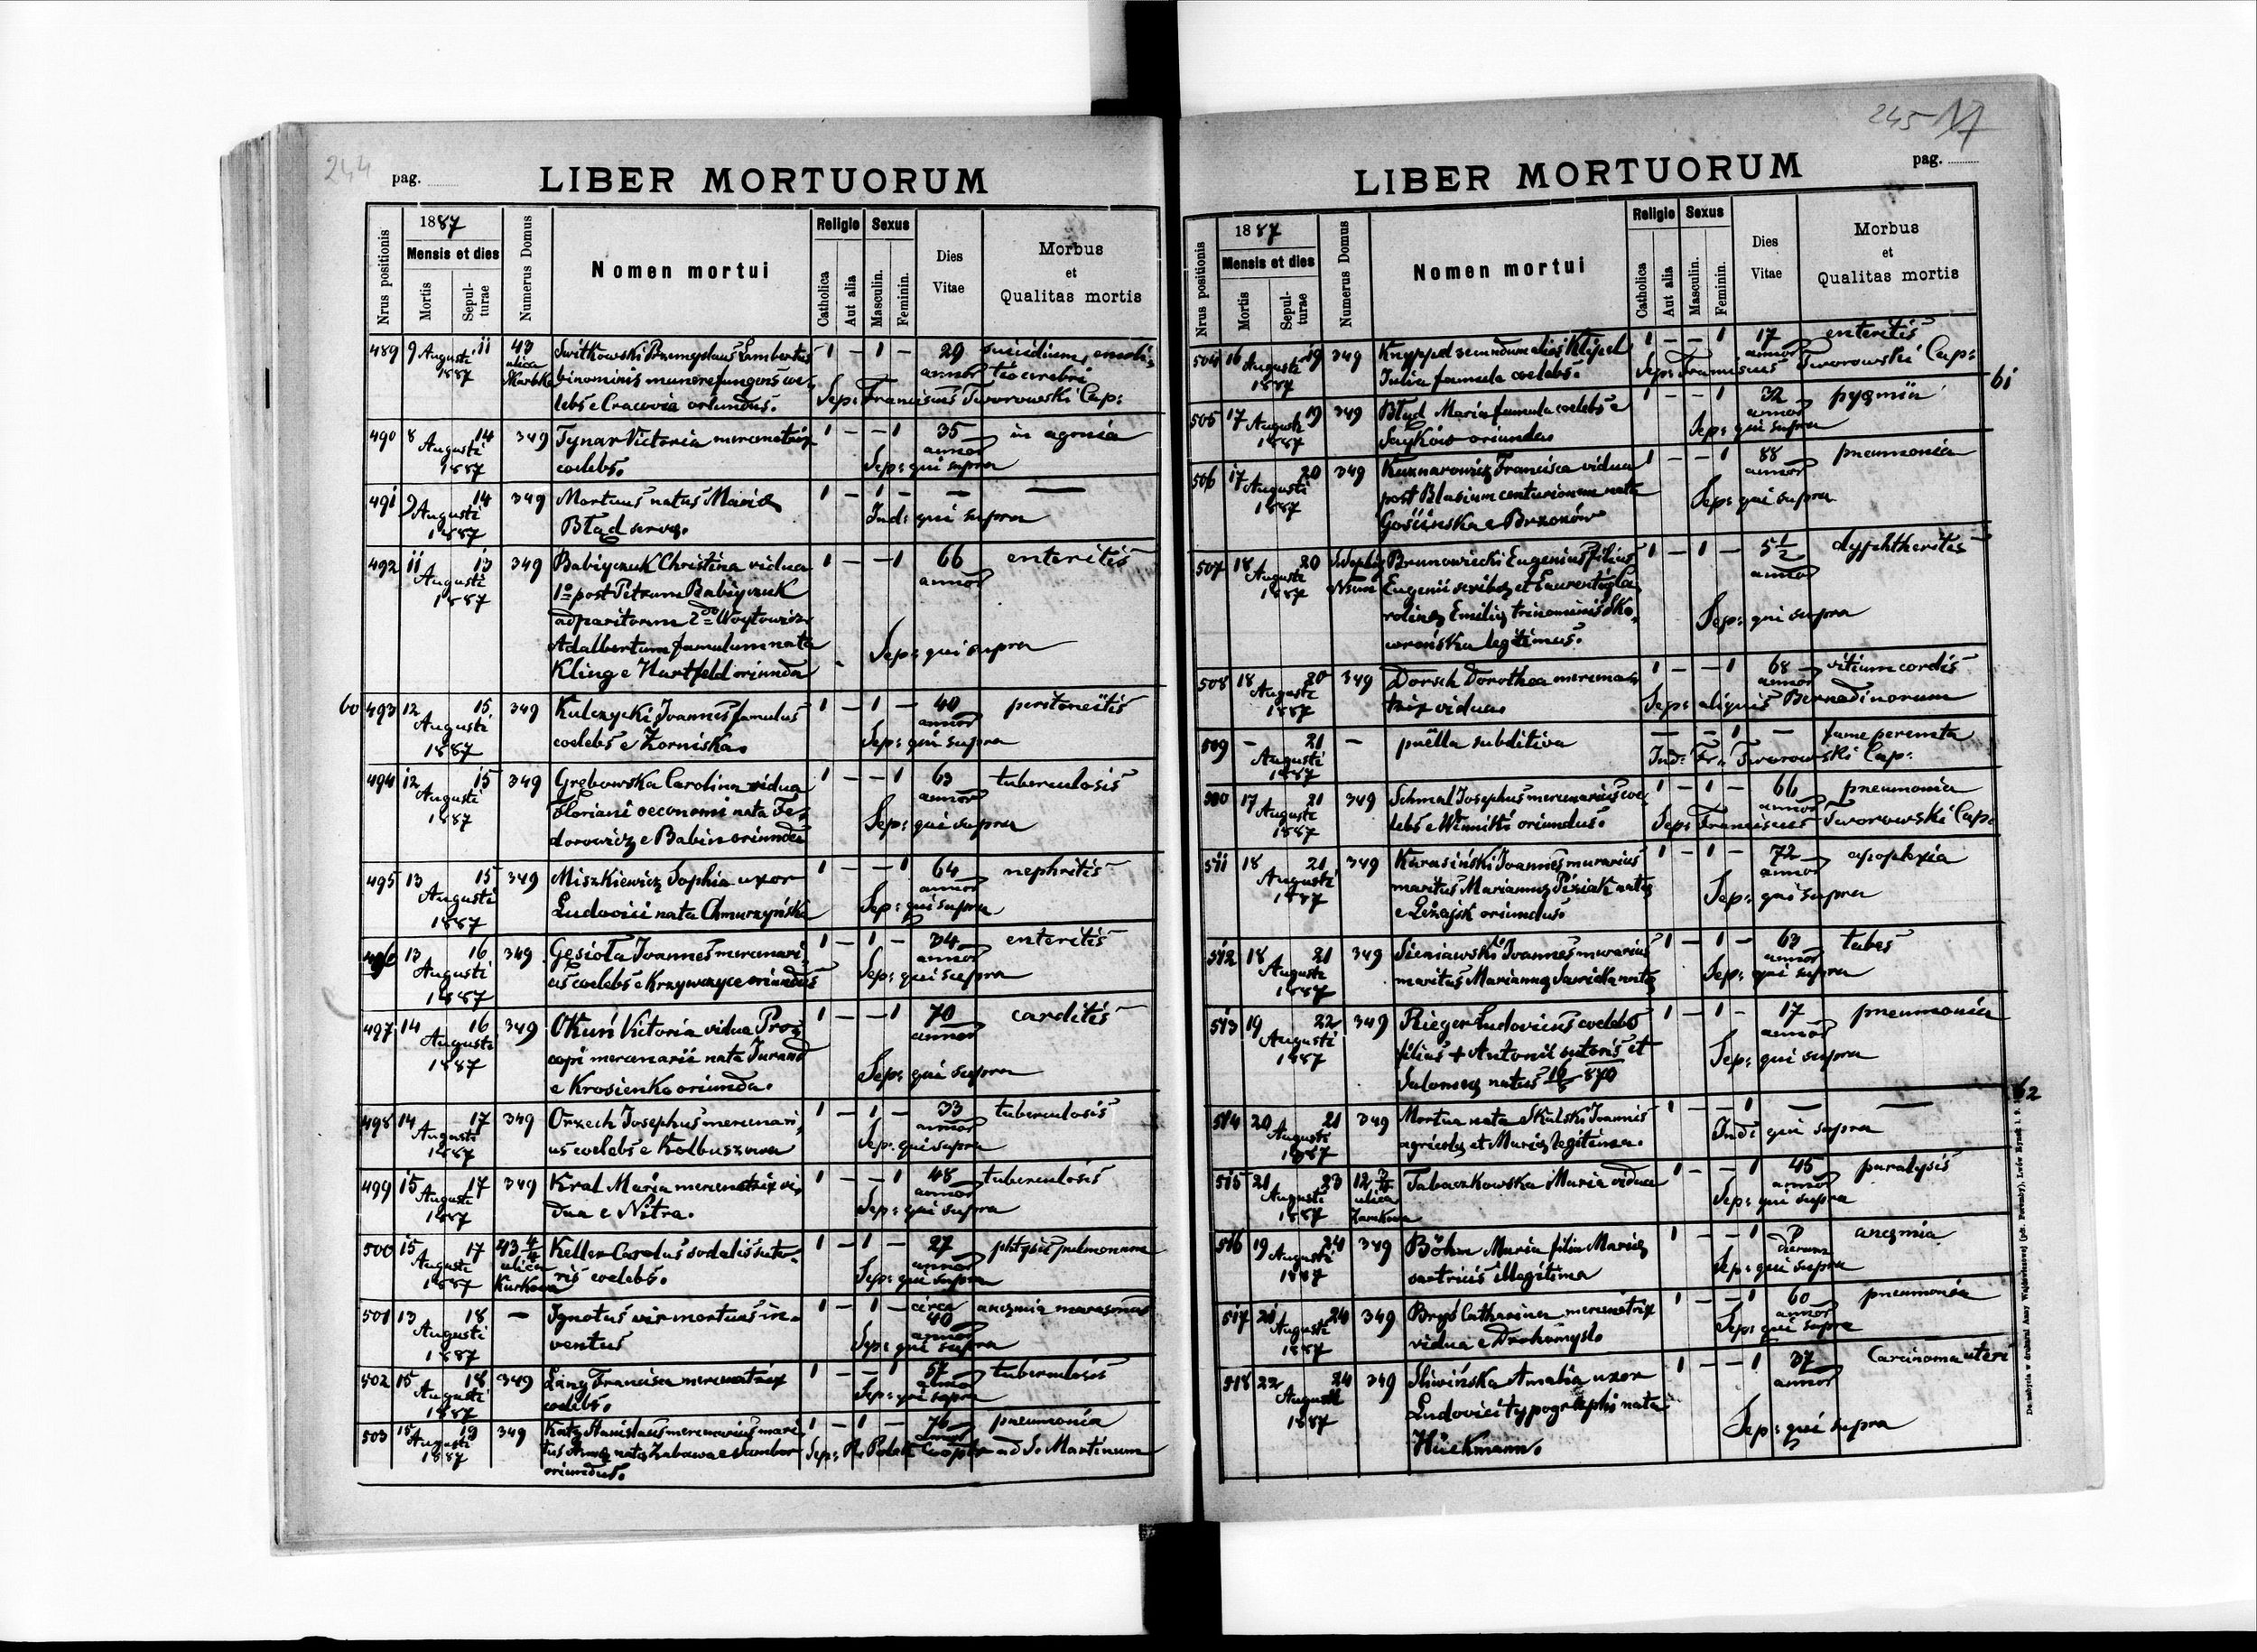 244
pag.
LIBER MORTUORUM
Nrus positionis
1887
Mensis et dies
Mortis
Sepulturae
Numerus Domus
Nomen mortui
Religio
Catholica
Aut alia
Sexus
Masculin.
Feminin.
Dies Vitae
Morbus et Qualitas mortis
489 9 Augusti 11 43 Switkowski Przemyslaus Lambertus 1 – 1 – 29 suicidium, emoli-
1887 ulica Skarbka binominis munere fungens coe- annor tio cerebri
lebs e Cracovia oriundus. Sep: Franciscus Tworowski Cap:
490 8 14 349 Tynar Victoria mercenatrix 1 – – 1 35 in agonia
Augusti 1887 coelebs. annor Sep: qui supra
491 9 14 349 Mortuus natus Mariæ 1 – 1 – – —
Augusti 1887 Błąd servæ. Ind: qui supra
492 11 13 349 Babiyczuk Christina vidua 1 – – 1 66 enteritis
Augusti 1º post Petrum Babiyczuk annor
1887 adparitorum 2do Woytowicz
Adalbertum famulum nata Sep: qui supra
Kling e Hartfeld oriunda
60 493 12 15 349 Kulczycki Joannes famulus 1 – 1 – 40 peritoneitis
Augusti annor
1887 coelebs e Korniska. Sep: qui supra
494 12 15 349 Grębowska Carolina vidua 1 – – 1 63 tuberculosis
Augusti Floriani oeconomi nata Fe- annor
1887 dorowicz e Babin oriunda Sep: qui supra
495 13 15 349 Miszkiewicz Sophia uxor 1 – – 1 64 nephritis
Augusti annor
1887 Ludovici nata Chmurzyńska Sep: qui supra
496 13 16 349 Gęsiola Joannes mercenari- 1 – 1 – 34 enteritis
Augusti annor
1887 us coelebs e Krzywczyce oriundus Sep: qui supra
497 14 16 349 Okuń Victoria vidua Pro- 1 – – 1 70 carditis
Augusti copi mercenarii nata Jurand annor
1887 e Krosienko oriunda. Sep: qui supra
498 14 17 349 Orzech Josephus mercenari- 1 – 1 – 33 tuberculosis
Augusti annor
1887 us coelebs e Kolbuszowa Sep: qui supra
499 15 17 349 Kral Maria mercenatrix vi- 1 – – 1 48 tuberculosis
Augusti annor
1887 dua e Nitra. Sep: qui supra
500 15 17 43 4/4 Keller Carolus sodalis suto- 1 – 1 – 27 phtysis pulmonum
Augusti ulica annor
1887 Kurkowa ris coelebs. Sep: qui supra
501 13 18 – Ignotus vir mortuus in- 1 – 1 – circa 40 anæmia marasmus
Augusti annor
1887 ventus Sep: qui supra
502 15 18 349 Lang Francisca mercenatrix 1 – – 1 57 tuberculosis
Augusti annor
1887 coelebs. Sep: qui supra
503 15 19 349 Katz Stanislaus mercenarius mari- 1 – 1 – 76 pneumonia
Augusti tus Annæ natæ Zabawa e Sambor annor
1887 oriundus. Sep: R. Polak Coop: ad S. Martinum
245 17
pag.
LIBER MORTUORUM
Nrus positionis
1887
Mensis et dies
Mortis
Sepulturae
Numerus Domus
Nomen mortui
Religio
Catholica
Aut alia
Sexus
Masculin.
Feminin.
Dies Vitae
Morbus et Qualitas mortis
504 16 19 349 Knyppel secundum alios Klijel 1 – – 1 17 enteritis
Augusti annor
1887 Julia famula coelebs. Sep: Franciscus Tworowski Cap:
61
505 17 19 349 Błąd Maria famula coelebs e 1 – – 1 32 pyæmia
Augusti annor
1887 Saykow oriunda Sep: qui supra
506 17 20 349 Kuznarowicz Francisca vidua 1 – – 1 88 pneumonia
Augusti post Blasium centurionem nata annor
1887 Gościnska e Brzozów Sep: qui supra
507 18 20 Brunowiecki Eugenius filius 1 – 1 – 5 1/2 dyphtheritis
Augusti Eugenii scribæ et Laurentiæ Ca- annor
1887 rolinæ Emiliæ trinominis Sko- Sep: qui supra
worońska legitimus.
508 18 20 349 Dorsch Dorothea mercena- 1 – – 1 68 vitium cordis
Augusti annor
1887 trix vidua. Sep: aliquis Bernadinorum
509 – 21 – puella subditiva — – 1 – fame peremta
Augusti
1887 Ind: Fr. Tworowski Cap:
510 17 21 349 Schmal Josephus mercenarius coe- 1 – 1 – 66 pneumonia
Augusti annor
1887 lebs e Winniki oriundus. Sep: Franciscus Tworowski Cap:
511 18 21 349 Karasiński Joannes murarius 1 – 1 – 72 apoplexia
Augusti maritus Mariannæ Piziak natæ annor
1887 e Leżajsk oriundus. Sep: qui supra
512 18 21 349 Sieniawski Joannes murarius 1 – 1 – 63 tabes
Augusti annor
1887 maritus Mariannæ Sawicka natæ Sep: qui supra
513 19 22 349 Rieger Ludovicus coelebs 1 – 1 – 17 pneumonia
Augusti filius + Antonii sutoris et annor
1887 Salomeæ natus 19/8 870 Sep: qui supra
62
514 20 21 349 Mortua nata Skulski Joannis 1 – – 1 — —
Augusti
1887 agricolæ et Mariæ legitima. Ind: qui supra
515 21 23 12 Tabaczkowska Maria vidua 1 – – 1 45 paralysis
Augusti ulica annor
1887 Zamkowa Sep: qui supra
516 19 24 349 Böhm Maria filia Mariæ 1 – – 1 dierum anæmia
Augusti
1887 sartricis illegitima Sep: qui supra
517 21 24 349 Bryś Catharina mercenatrix 1 – – 1 60 pneumonia
Augusti annor
1887 vidua e Drohomyśl. Sep: qui supra
518 22 24 349 Sliwińska Amalia uxor 1 – – 1 37 Carcinoma uteri
Augusti Ludovici typographi nata annor
1887 Hückmann. Sep: qui supra
Do nabycia w drukarni Anny Wajdowiczowej (pdt. Poremby), Lwów Rynek l. 9.